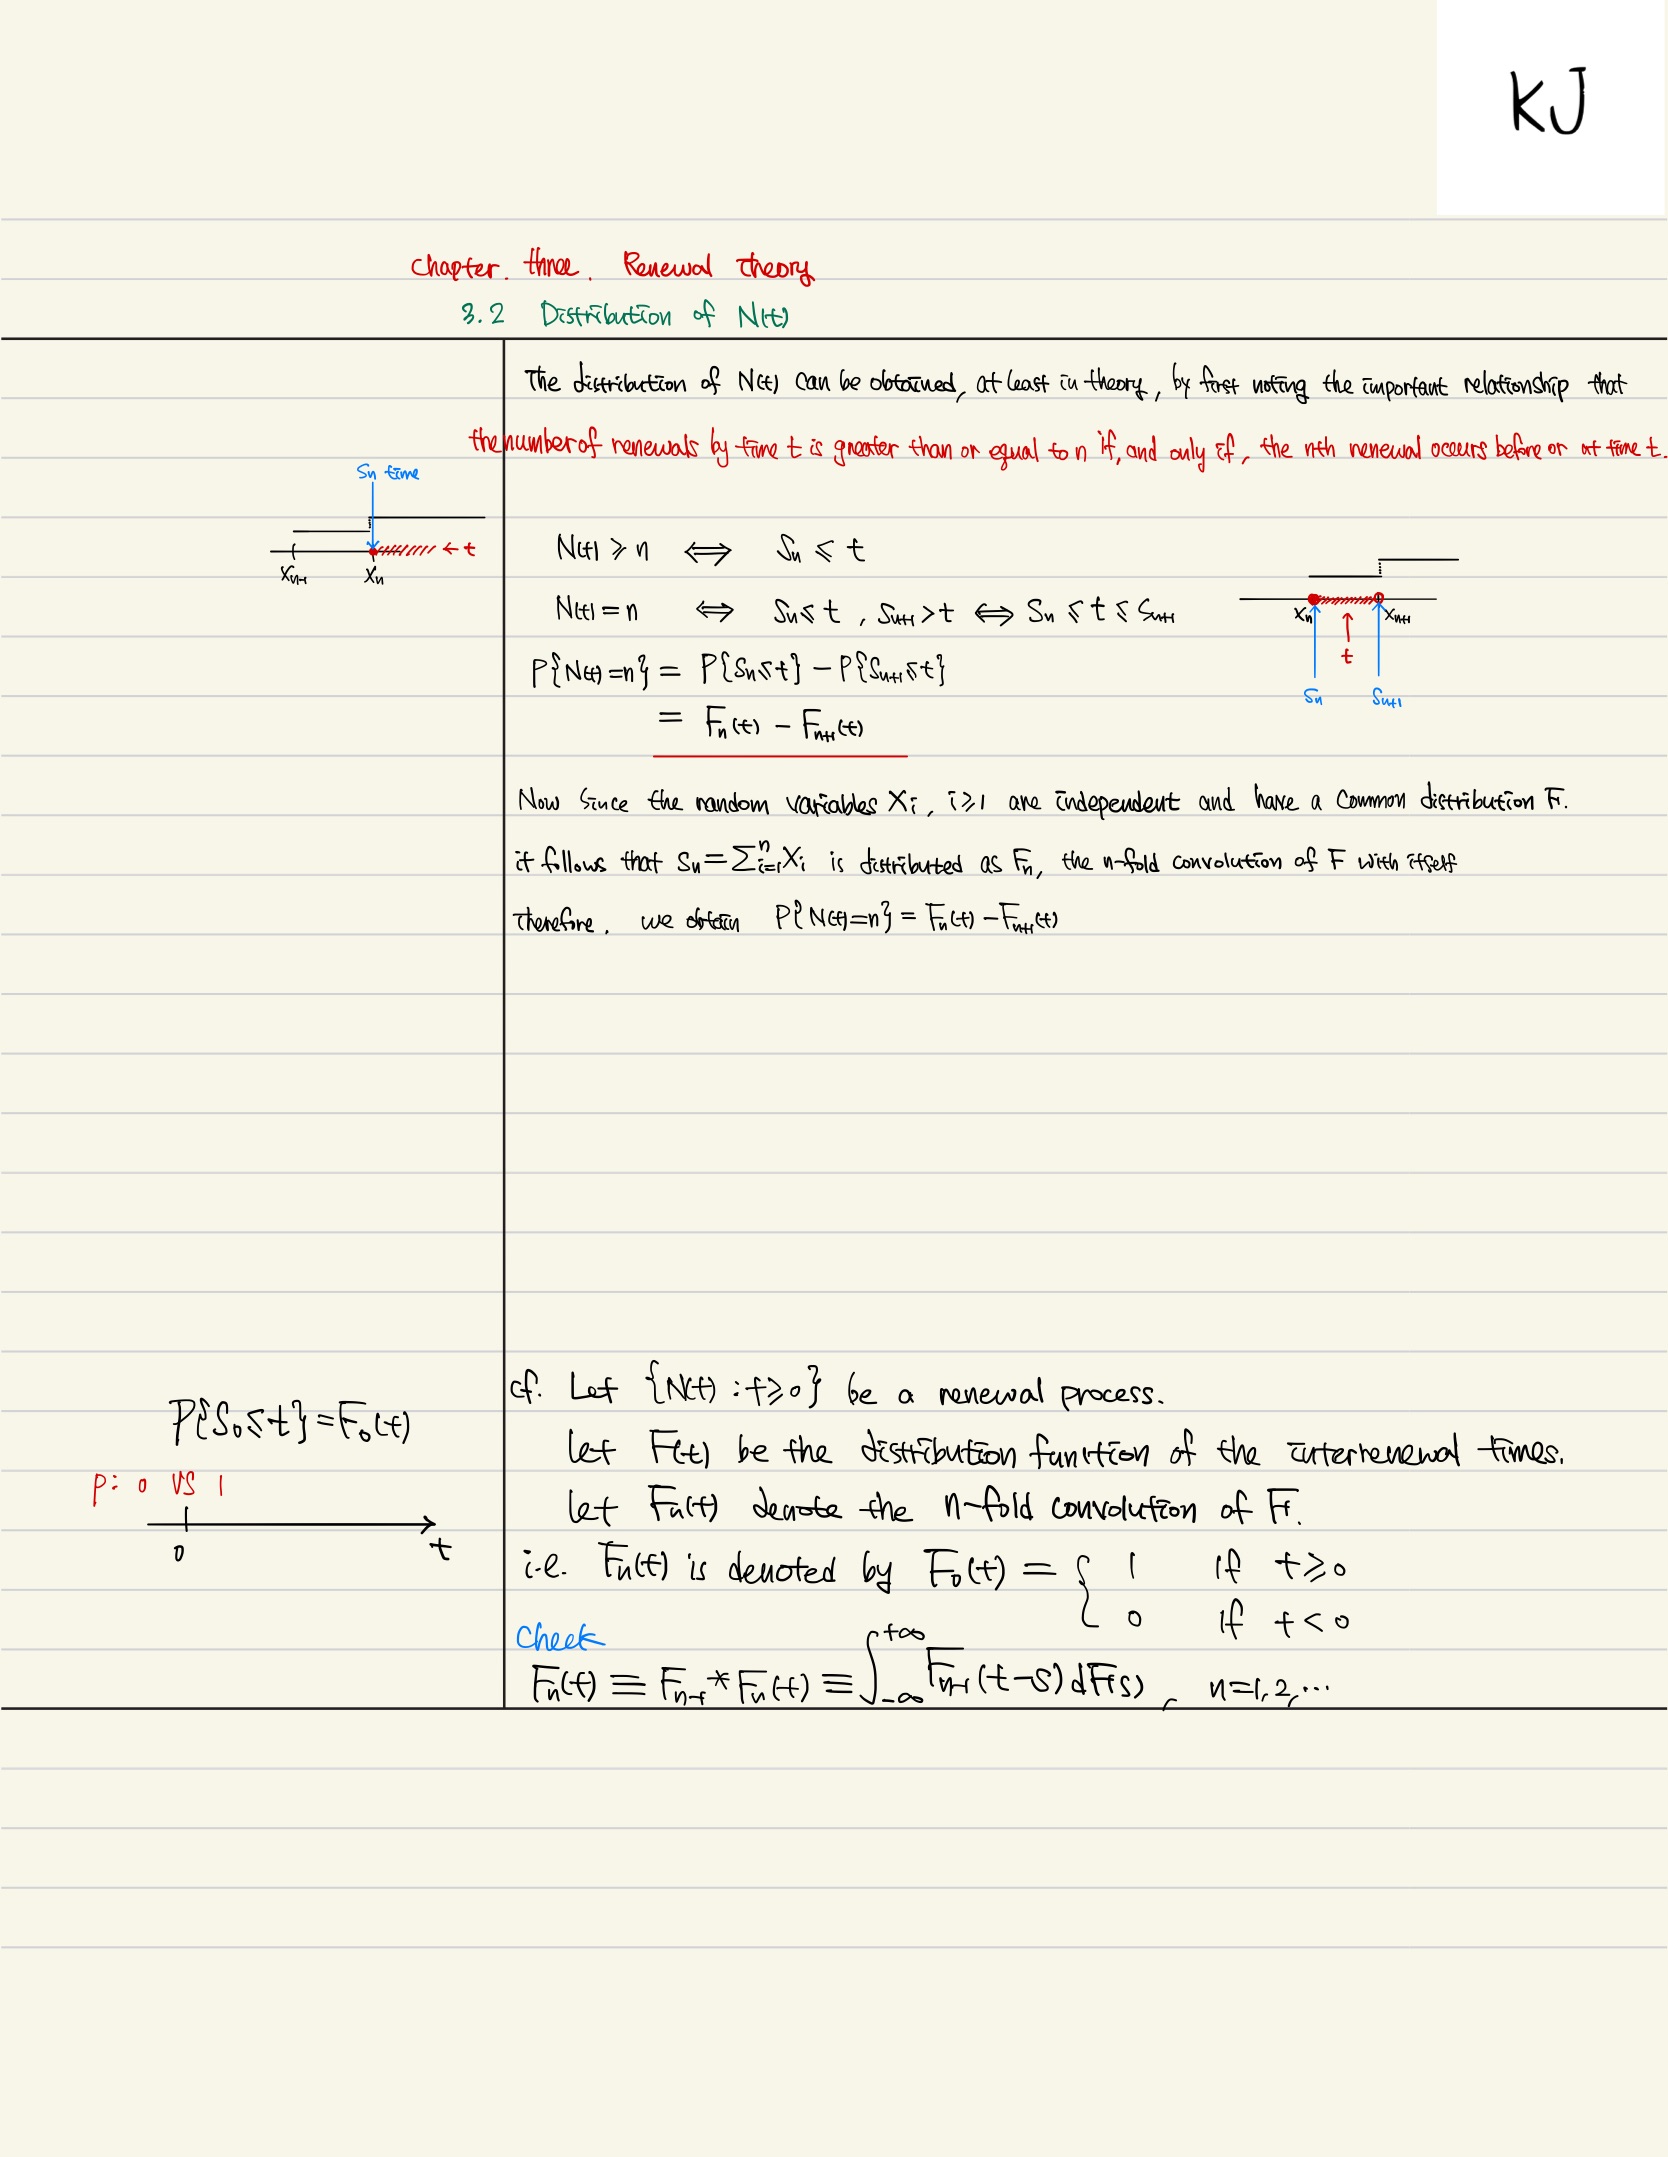 KJ
Chapter. three. Renewal Theory
3.2 Distribution of N(t)
The distribution of N(t) can be obtained, at least in theory, by first noting the important relationship that
the number of renewals by time t is greater than or equal to n if, and only if, the nth renewal occurs before or at time t.
Sn time
← t
Xn-1 Xn
N(t) ⩾ n ⟺ Sn ⩽ t
N(t) = n ⟺ Sn ⩽ t , Sn+1 > t ⟺ Sn ⩽ t ⩽ Sn+1
Xn Xn+1
t
Sn Sn+1
P{N(t) = n} = P{Sn ⩽ t} − P{Sn+1 ⩽ t}
= Fn(t) − Fn+1(t)
Now Since the random variables Xi, i ⩾ 1 are independent and have a Common distribution F.
it follows that Sn = ∑ⁿi=1 Xi is distributed as Fn, the n-fold convolution of F with itself
Therefore. we obtain P{N(t) = n} = Fn(t) − Fn+1(t)
P{S0 ⩽ t} = F0(t)
P: 0 VS 1
0 t
cf. Let {N(t) : t ⩾ 0} be a renewal process.
let F(t) be the distribution function of the interrenewal times.
let Fn(t) denote the n-fold convolution of F.
i.e. Fn(t) is denoted by F0(t) = { 1 if t ⩾ 0
0 if t < 0
Check
Fn(t) ≡ Fn-1 * Fn(t) ≡ ∫₋∞⁺∞ Fn-1(t−s) dF(s), n=1,2,⋯